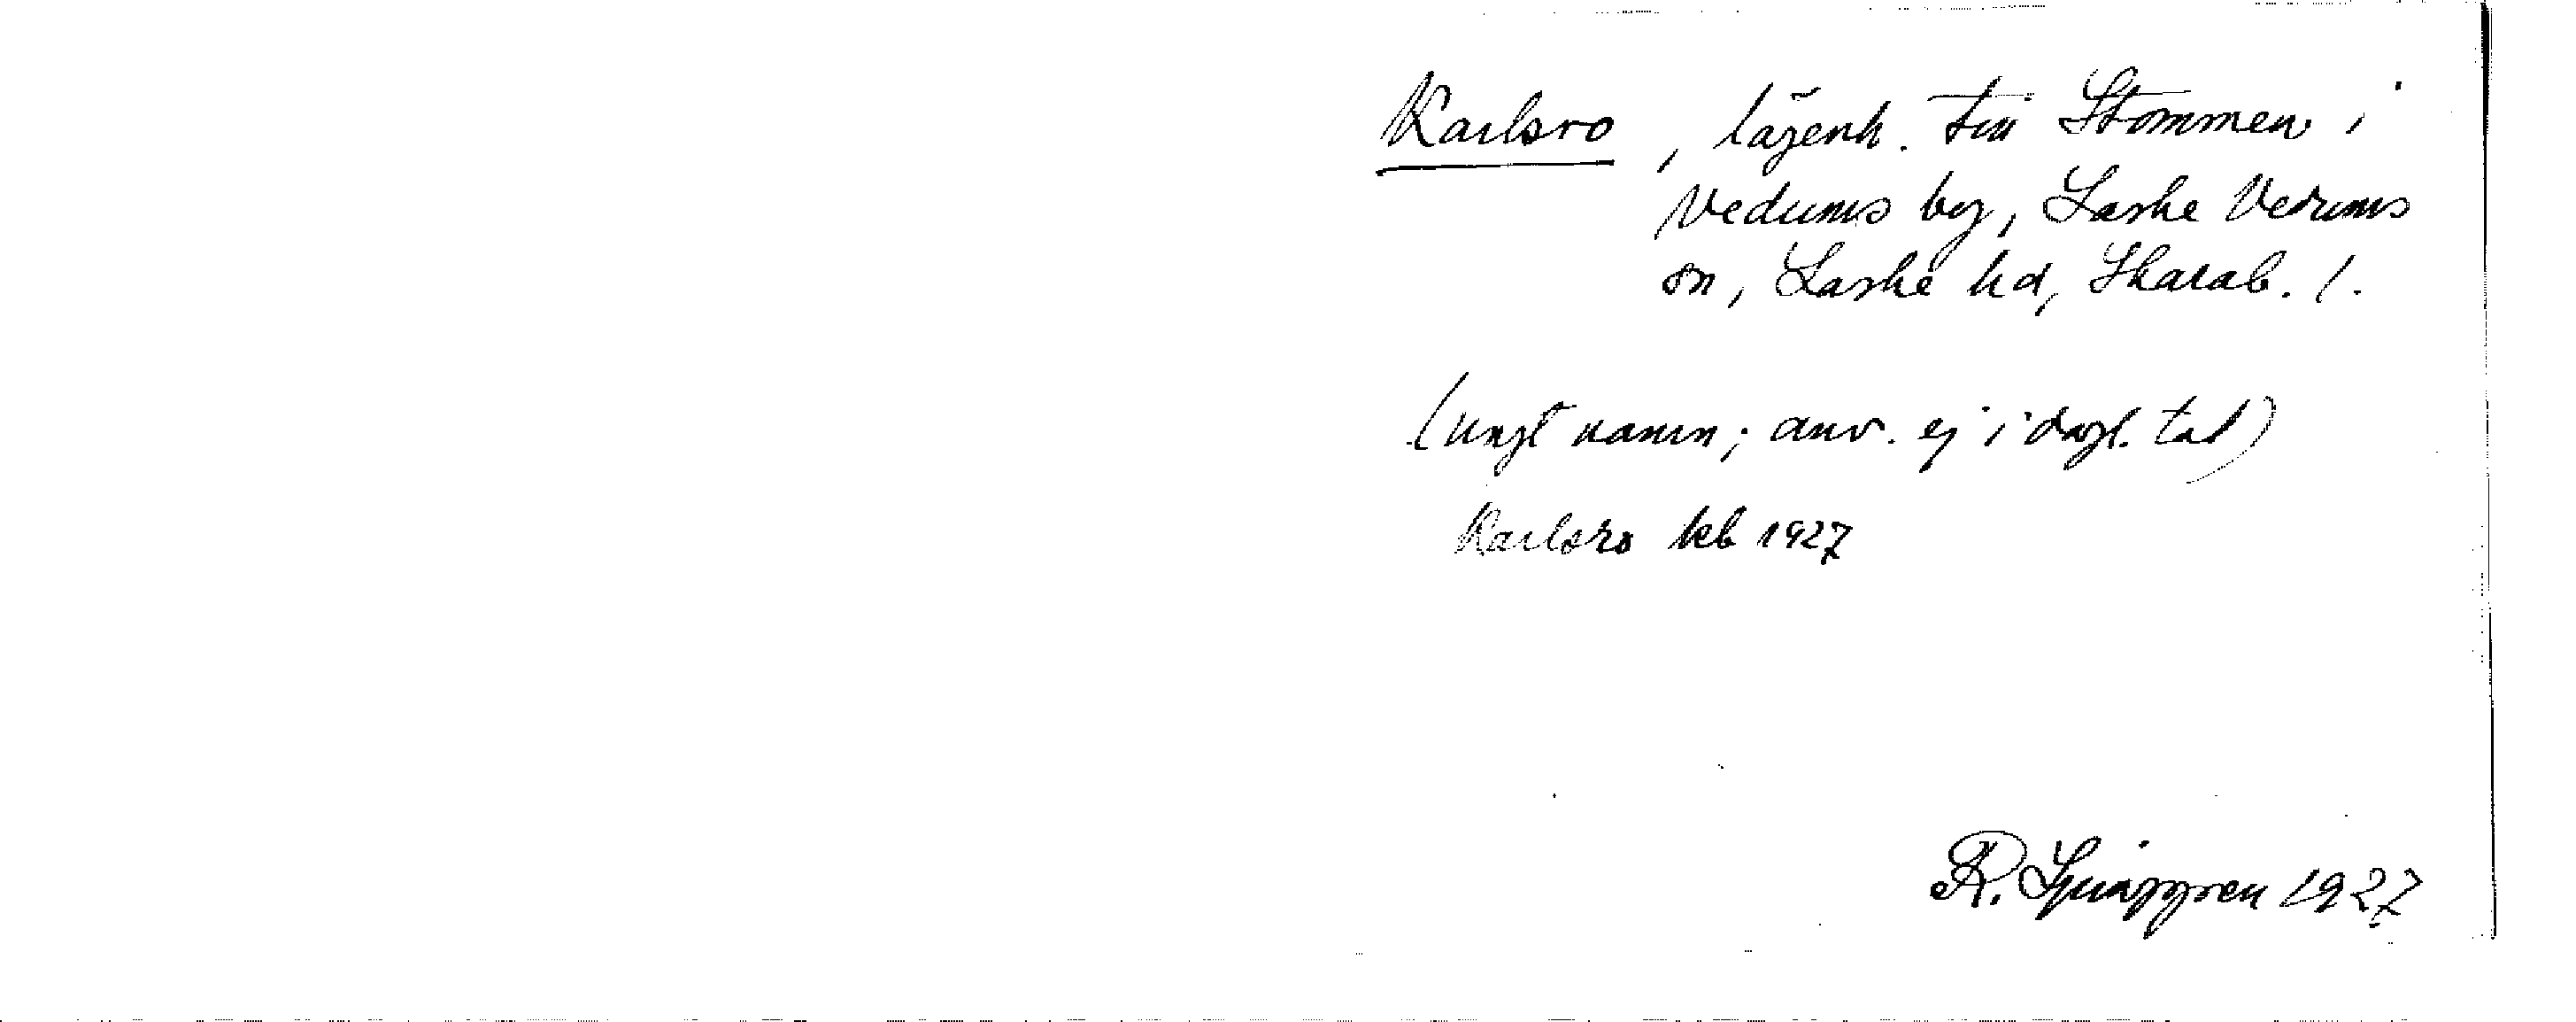 Karlsro, lägenh. till Stommen i
Vedums by, Laske Vedums
sn, Laske hd, Skarab. l.
(ungt namn; anv. ej i dagl. tal)
Karlsro kb 1927
R. Ljunggren 1927